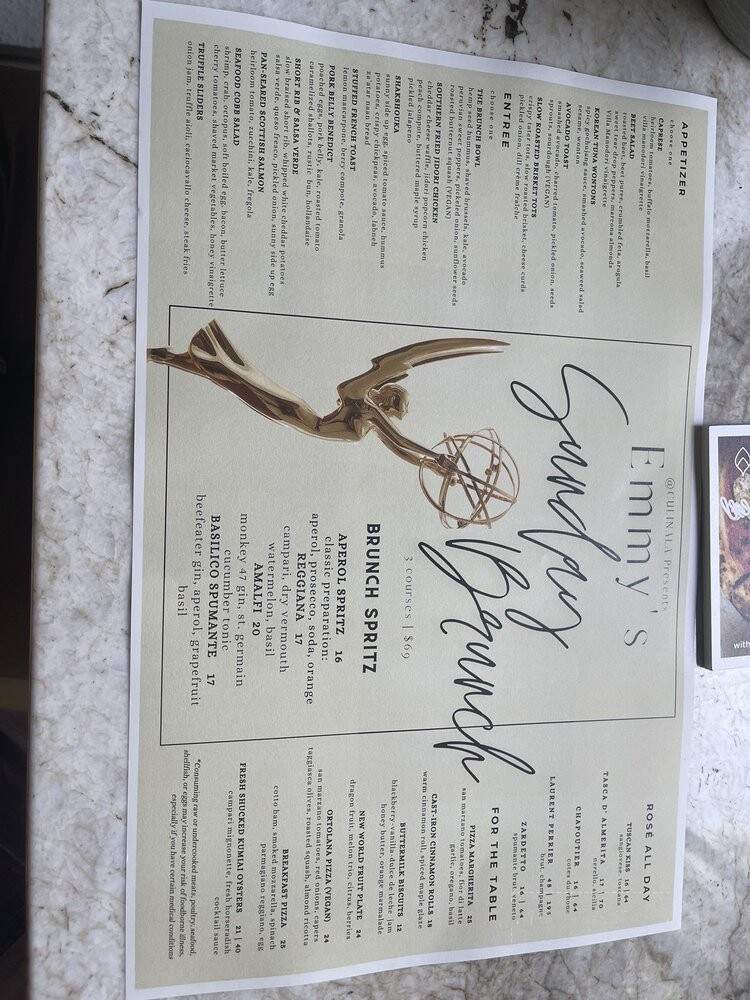 APPETIZER
choose one
CAPRESE
heirloom tomatoes, buffalo mozzarella, basil
villa manodori vinaigrette
BEET SALAD
roasted beet, beet puree, crumbled feta, arugula
sweet tear drop peppers, marcona almonds
Villa Manodori Vinaigrette
KOREAN TUNA WONTONS
spicy gochujang sauce, smashed avocado, seaweed salad
sesame, wonton
AVOCADO TOAST
smashed avocado, charred tomato, pickled onion, seeds
sprouts, sourdough (VEGAN)
SLOW ROASTED BRISKET TOTS
crispy tater tots, slow roasted brisket, cheese curds
pickled onion, dill crème fraîche
ENTREE
choose one
THE BRUNCH BOWL
hemp seed hummus, shaved brussels, kale, avocado
peruvian sweet peppers, pickled onion, sunflower seeds
roasted butternut squash (VEGAN)
SOUTHERN FRIED JIDORI CHICKEN
cheddar cheese waffle, jidori popcorn chicken
peach compote, buttered maple syrup
pickled jalapeno
SHAKSHOUKA
sunny side up egg, spiced tomato sauce, hummus
potatoes, crispy chickpeas, avocado, labneh
za'atar naan bread
STUFFED FRENCH TOAST
lemon mascarpone, berry compote, granola
PORK BELLY BENEDICT
poached eggs, pork belly, kale, roasted tomato
caramelized shallots, rustic bun, hollandaise
SHORT RIB & SALSA VERDE
slow braised short rib, whipped white cheddar potatoes
salsa verde, queso fresco, pickled onion, sunny side up egg
PAN-SEARED SCOTTISH SALMON
heirloom tomato, zucchini, kale, fregola
SEAFOOD COBB SALAD
shrimp, crab, octopus, soft boiled egg, bacon, butter lettuce
cherry tomatoes, shaved market vegetables, honey vinaigrette
TRUFFLE SLIDERS
onion jam, truffle aioli, caciocavallo cheese, steak fries
@CULINALA Presents
Emmy's
Sunday Brunch
3 courses | $69
BRUNCH SPRITZ
APEROL SPRITZ 16
classic preparation:
aperol, prosecco, soda, orange
REGGIANA 17
campari, dry vermouth
watermelon, basil
AMALFI 20
monkey 47 gin, st. germain
cucumber tonic
BASILICO SPUMANTE 17
beefeater gin, aperol, grapefruit
basil
ROSÉ ALL DAY
TUSCAN KISS 16 | 64
sangiovese, toscana
TASCA D' ALMERITA 17 | 70
nerello, sicilia
CHAPOUTIER 16 | 64
cotes du rhone
LAURENT PERRIER 48 | 195
brut, champagne
ZARDETTO 16 | 64
spumante brut, veneto
FOR THE TABLE
PIZZA MARGHERITA 25
san marzano tomatoes, fior di latte
garlic, oregano, basil
CAST-IRON CINNAMON ROLLS 18
warm cinnamon roll, spiced maple glaze
BUTTERMILK BISCUITS 12
blackberry-vanilla-dulce de leche jam
honey butter, orange marmalade
NEW WORLD FRUIT PLATE 24
dragon fruit, melon trio, citrus, berries
ORTOLANA PIZZA (VEGAN) 24
san marzano tomatoes, red onions, capers
taggiasca olives, roasted squash, almond ricotta
BREAKFAST PIZZA 25
cotto ham, smoked mozzarella, spinach
parmagiano reggiano, egg
FRESH SHUCKED KUMIAI OYSTERS 21 | 40
campari mignonette, fresh horseradish
cocktail sauce
*Consuming raw or undercooked meats, poultry, seafood,
shellfish, or eggs may increase your risk of foodborne illness,
especially if you have certain medical conditions
with